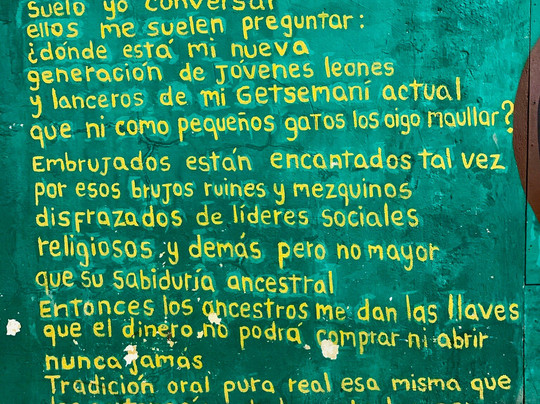 suelo yo conversar
ellos me suelen preguntar:
¿dónde está mi nueva
generación de jóvenes leones
y lanceros de mi Getsemaní actual
que ni como pequeños gatos los oigo maullar?
Embrujados están encantados tal vez
por esos brujos ruines y mezquinos
disfrazados de líderes sociales
religiosos y demás pero no mayor
que su sabiduría ancestral
Entonces los ancestros me dan las llaves
que el dinero no podrá comprar ni abrir
nunca jamás
Tradición oral pura real esa misma que